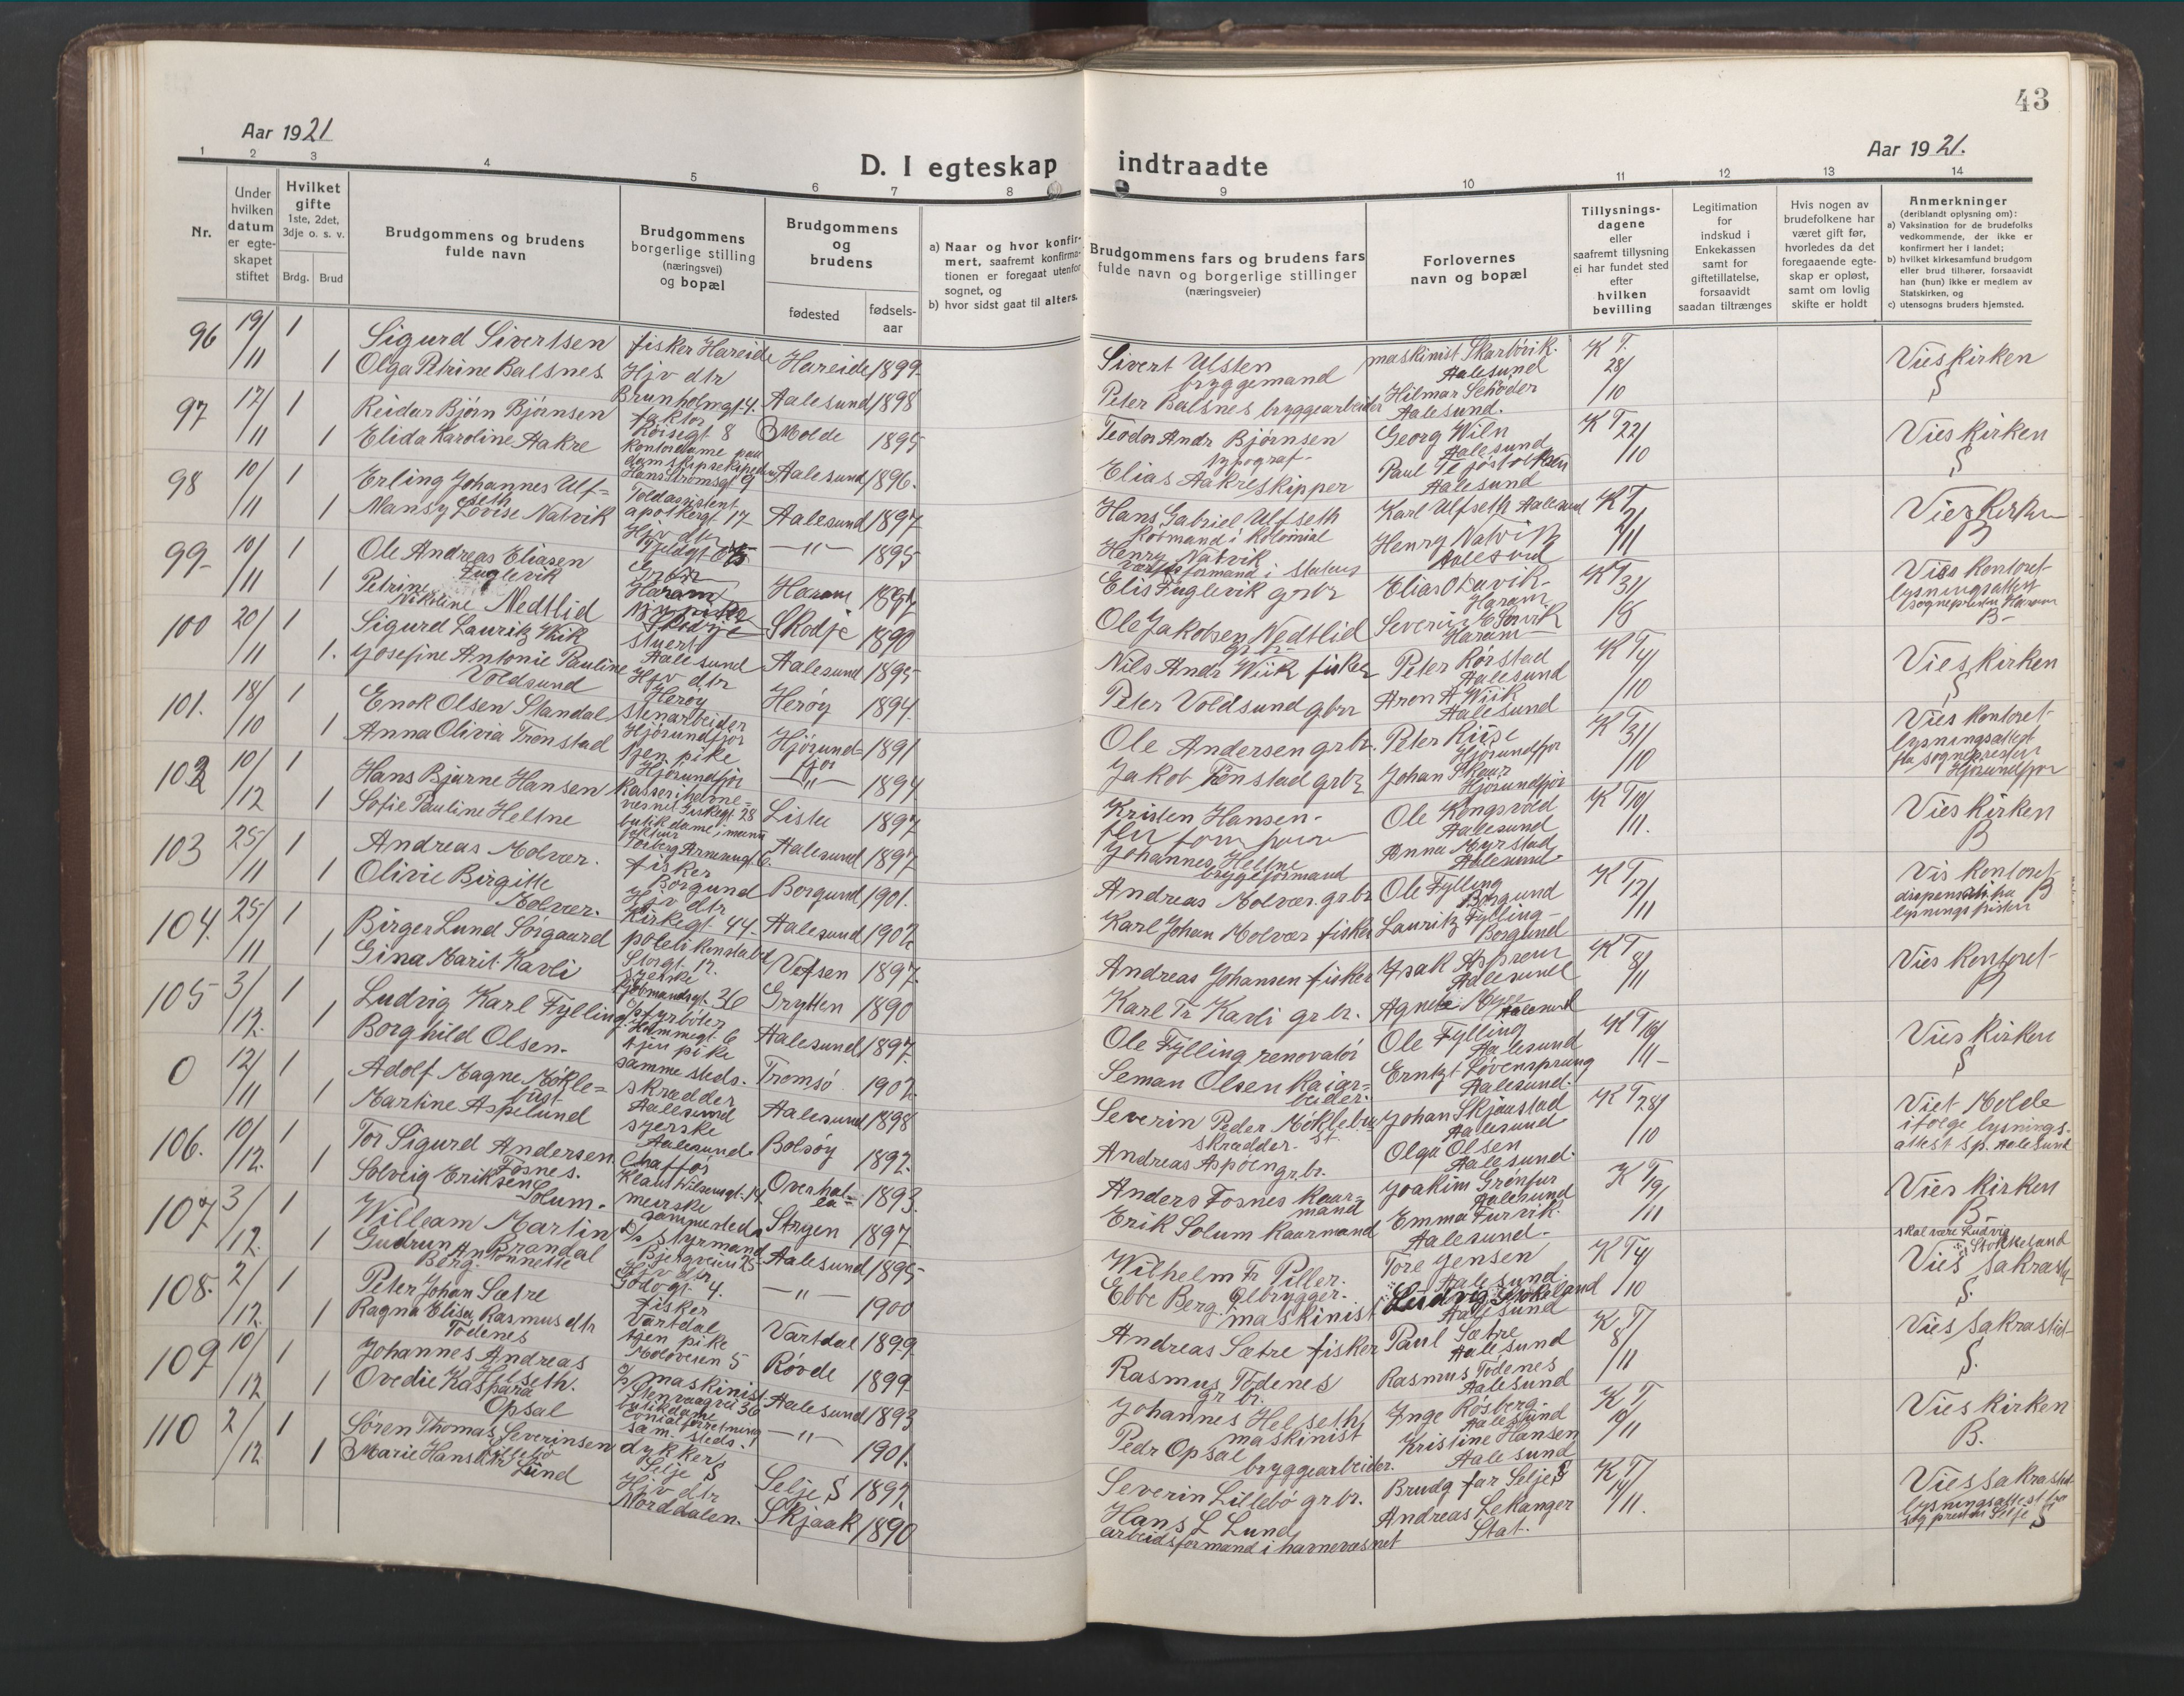 43
Aar 1921
Aar 1921.
D. I egteskap indtraadte
1 2 3 4 5 6 7 8 9 10 11 12 13 14
Nr.
Under hvilken datum er egte-skapet stiftet
Hvilket gifte
1ste, 2det, 3dje o. s. v.
Brdg. Brud
Brudgommens og brudens fulde navn
Brudgommens borgerlige stilling (næringsvei) og bopæl
Brudgommens og brudens
fødested
fødsels-aar
a) Naar og hvor konfir-mert, saafremt konfirma-tionen er foregaat utenfor sognet, og
b) hvor sidst gaat til alters.
Brudgommens fars og brudens fars fulde navn og borgerlige stillinger (næringsveier)
Forlovernes navn og bopæl
Tillysnings-dagene eller saafremt tillysning ei har fundet sted efter hvilken bevilling
Legitimation for indskud i Enkekassen samt for giftetillatelse, forsaavidt saadan tiltrænges
Hvis nogen av brudefolkene har været gift før, hvorledes da det foregaaende egte-skap er opløst, samt om lovlig skifte er holdt
Anmerkninger
(deriblandt oplysning om):
a) Vaksination for de brudefolks vedkommende, der ikke er konfirmert her i landet;
b) hvilket kirkesamfund brudgom eller brud tilhører, forsaavidt han (hun) ikke er medlem av Statskirken, og
c) utensogns bruders hjemsted.
96 19/11 1 Sigurd Sivertsen fisker Hareide Hareide 1899 Sivert Ulsten bryggemand maskinist Aalesund K T. 28/10 Vies kirken
1 Olga Petrine Balsnes Hjv dtr Brunholmgt 4. Aalesund 1898 Peter Balsnes bryggearbeider Hilmar Aalesund. S
97 12/11 1 Reidar Bjørn Bjørnsen faktor 8 Molde 1895 Teodor Andr Bjørnsen typograf Georg Aalesund K T 22/10 Vies kirken
1 Elida Karoline Aakre kontordame paa Hans Strømsgt 9 Aalesund 1896. Elias Aakre skipper Paul Aalesund S
98 10/11 1 Erling Johannes Ulf=seth Toldassistent apotekergt. 17 Aalesund 1897 Hans Gabriel Ulfseth Købmand i kolonial Karl Ulfseth Aalesund K T 2/11 Vies kirken
1 Mansy Lovise Natvik Hjv dtr —"— 1895 Henry Natvik Henry Natvik Aalesund B
99 10/11 1 Ole Andreas Eliasen Fuglevik Grbr Haram Haram 1897 Elis Fuglevik grbr Haram K T 31/8 Vies kontoret lysningsattest sognepresten Haram
1 Petrine Nikoline Nedtlid Skodje Skodje 1890 Ole Jakobsen Nedtlid Haram B
100 20/11 1 Sigurd Lauritz Wiik stuert Aalesund Aalesund 1895 Nils Andr Wiik fisker Peter Rørstad Aalesund K T 4/10 Vies kirken
1. Josefine Antonie Pauline Voldsund Hjv dtr Herøy Herøy 1894 Peter Voldsund gbr Aron A Wiik Aalesund S
101. 18/10 1 Enok Olsen Standal stenarbeider Hjørundfjor Hjørund=fjor 1891 Ole Andersen grbr. Peter Riise Hjørundfjor K T 31/10 Vies kontoret lysningsattest fra sogneprester Hjørundfjor
1 Anna Olivia Tronstad tjen. pike Hjørundfjor —"— 1894 Jakob Tronstad grbr Johan Skaar Hjørundfjor
102 10/12 1 Hans Bjarne Hansen Lister 1897 Kristen Hansen Ole Kongsvold Aalesund K T 10/11. Vies kirken
1 Sofie Pauline Heltne butikdame Aalesund 1897 Johannes Heltne bryggeformand Anna Myrstad Aalesund B
103 25/11 1 Andreas Molvær. fisker Borgund Borgund 1901. Andreas Molvær grbr Ole Fylling Borgund K T 12/11 kontoret B
1 Olivie Birgitte Molvær. Hjv dtr Kirkegt. 44 Aalesund 1902 Karl Johan Molvær fisker Lauritz Fylling Borgund
104. 25/11 1 Birger Lund Sørgaard politi konstabel Storgt. 12. Vefsen 1897. Andreas Johansen fisker Isak Aalesund K T 8/11 Vies kontoret
1 Gina Marit Kavli syerske 36 Grytten 1890 Karl Tr Kavli grbr. Aalesund B
105 3/12. 1 Ludvig Karl Fylling fyrbøter 6 Aalesund 1897. Ole Fylling renovatør Ole Fylling Aalesund K T 16/11 Vies kirken
1 Borghild Olsen. tjen pike samme steds. Tromsø 1902. Seman Olsen kaiar=beider. Løvensprung Aalesund. S
0 12/11 1 Adolf Magne Møkle=bust skrædder Aalesund Aalesund 1898 Severin Peder Møklebust skrædder Johan Skjaastad Aalesund K T 28/10 Viet Molde ifølge lysnings-attest sp. Aalesund
1 Martine Aspelund syerske Aalesund. Bolsøy 1892. Andreas grbr. Olga Olsen Aalesund.
106. 10/12. 1 Tor Sigurd Andersen Fosnes. Overhal=la 1893. Anders Fosnes kaar=mand Joakim Aalesund K T 9/11 Vies kirken
1 Solveig Eriksen Solum. meierske sammesteds Stryen 1897 Erik Solum kaarmand Emma Furvik. Aalesund. B
107 3/12. 1 William Martin Brandal styrmand Aalesund 1895 Wilhelm Fr Piller. Ølbrygger. Tore Jensen Aalesund. K T 4/10 skal være Ludvig Stokkeland Vies sakrastiet
1 Gudrun Antonnette Berg. Hjv dtr Godøgt 4. —"— 1900 Ebbe Berg. maskinist Ludvig Stokeland Aalesund S.
108. 2/12. 1 Peter Johan Sætre fisker Vartdal Vartdal 1899 Andreas Sætre fisker Paul Sætre Aalesund K T 8/11 Vies sakrastiet
1 Ragna Elise Rasmusdtr Tødenes tjen pike Moloveien 5 Røvde 1899 Rasmus Tødenes gr br. Rasmus Tødenes Aalesund S.
109 10/12 1 Johannes Andreas Helseth. maskinist Aalesund 1893 Johannes Helseth maskinist Inge Røsberg. Aalesund K T 19/11 Vies kirken
1 Ovedie Kaspara Opsal butikdame sam. steds. —"— 1901. Pedr Opsal bryggearbeider. Kristine Hansen Aalesund B.
110 2/12 1 Søren Thomas Severinsen Lillebø dykker Selje S Selje S 1892. Severin Lillebø grbr. Brudg far Selje S K T 14/11. Vies sakrastiet lysningsattest fra Selje S
1 Marie Hansdtr Lund Hjv dtr Norddalen. Skjaak 1890 Hans L Lund arbeidsformand i havnevæsnet Andreas Lekanger Stat.